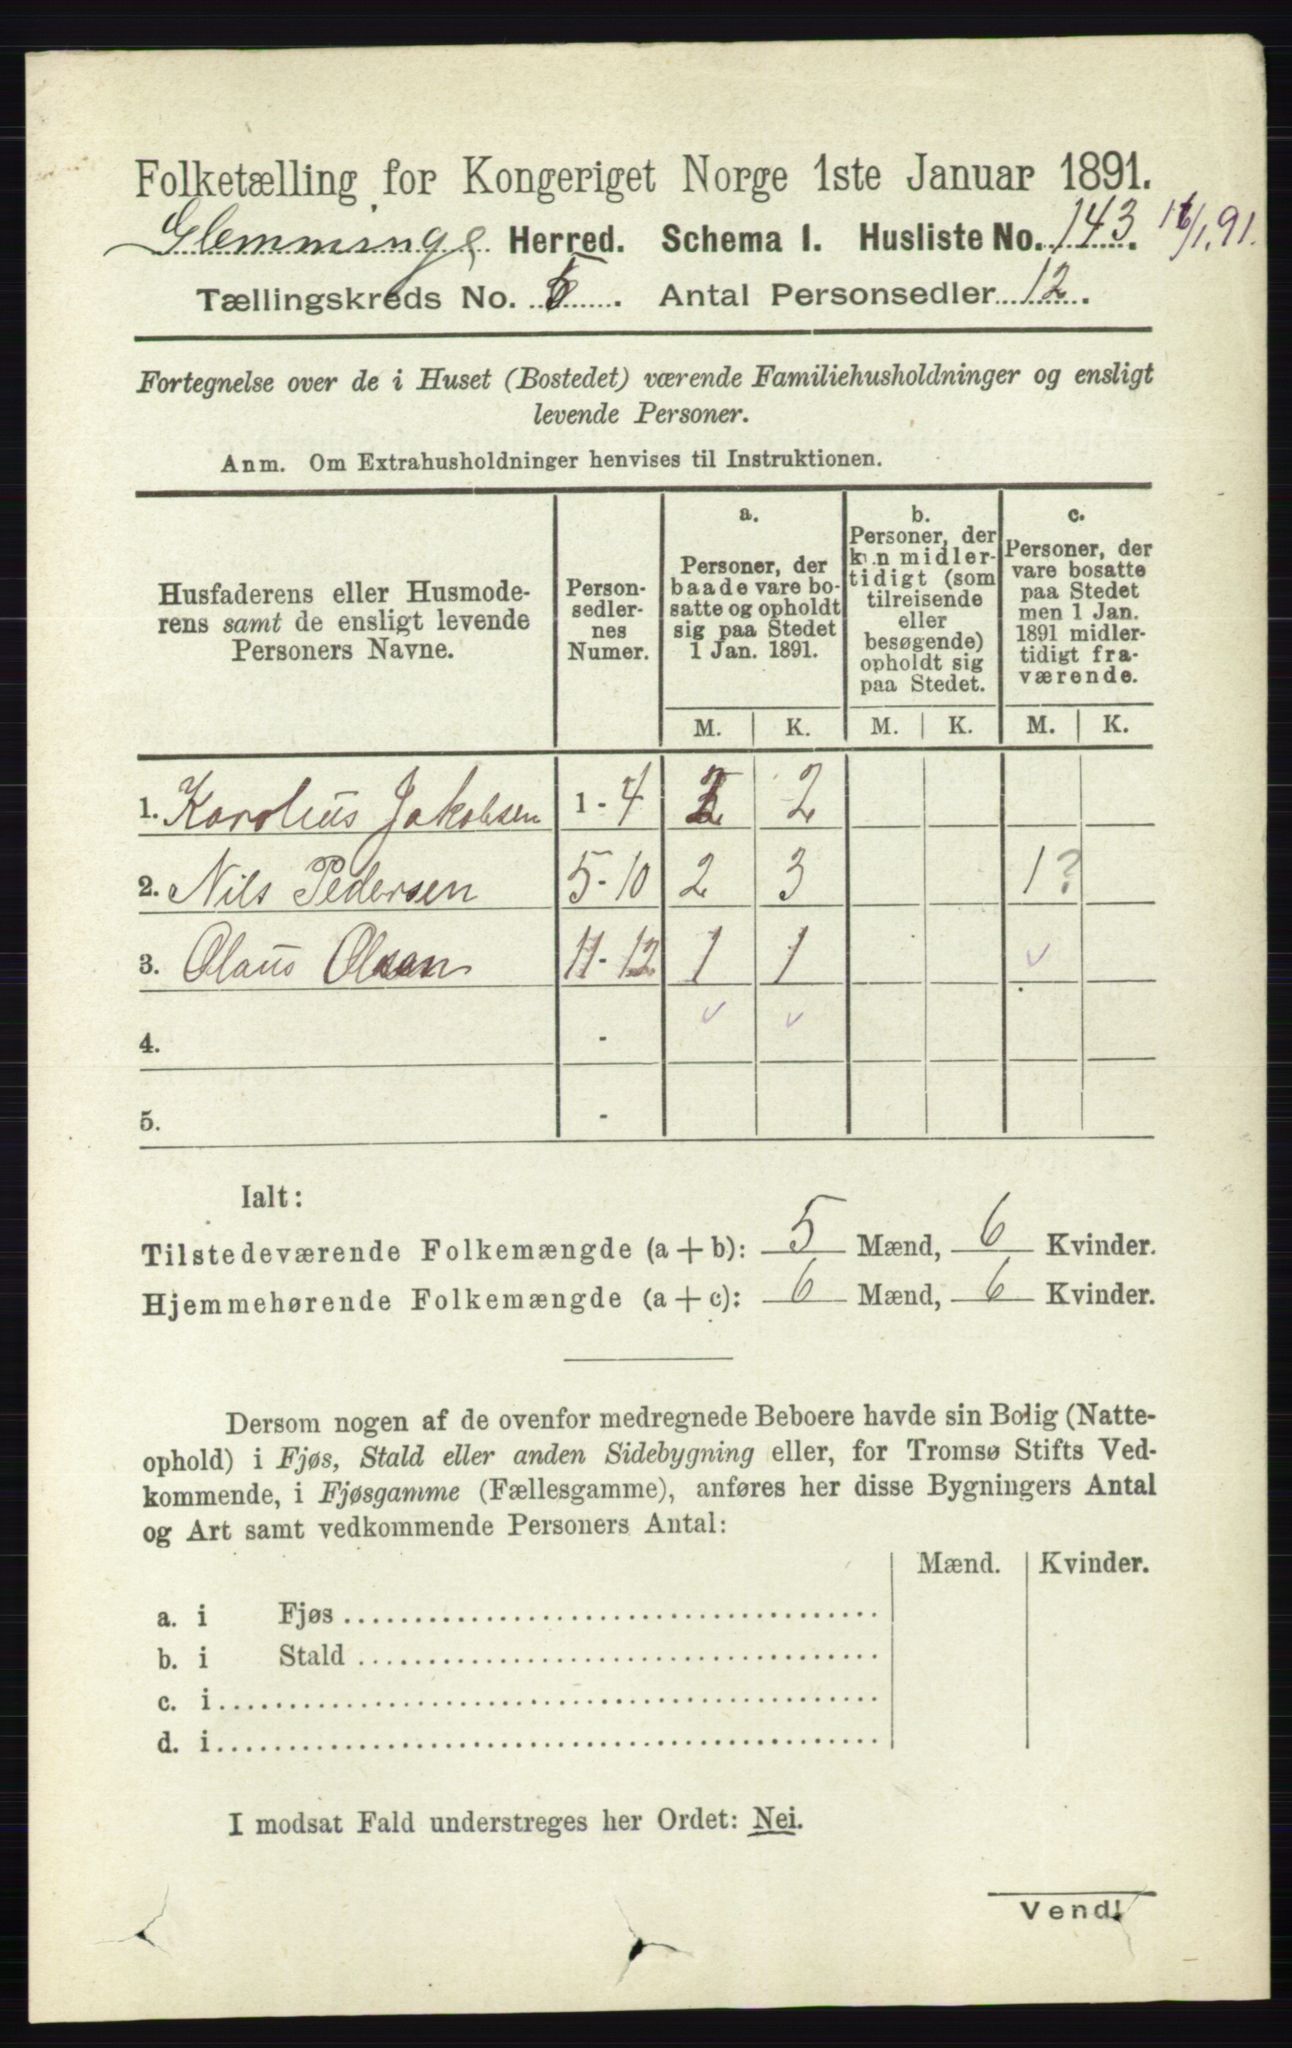 Folketælling for Kongeriget Norge 1ste Januar 1891.
Glemminge Herred. Schema 1. Husliste No. 143 16/1.91.
Tællingskreds No. 5. Antal Personsedler 12.
Fortegnelse over de i Huset (Bostedet) værende Familiehusholdninger og ensligt
levende Personer.
Anm. Om Extrahusholdninger henvises til Instruktionen.
Husfaderens eller Husmode-
rens samt de ensligt levende
Personers Navne.
Person-
sedler-
nes
Numer.
a.
Personer, der
baade vare bo-
satte og opholdt
sig paa Stedet
1 Jan. 1891.
b.
Personer, der
kun midler-
tidigt (som
tilreisende
eller
besøgende)
opholdt sig
paa Stedet.
c.
Personer, der
vare bosatte
paa Stedet
men 1 Jan.
1891 midler-
tidigt fra-
værende.
M. K. M. K. M. K.
1. Karolius Jakobsen 1 - 4 2 2
2. Nils Pedersen 5 - 10 2 3 1 ?
3. Olaus Olsen 11 - 12 1 1
4. -
5. -
Ialt:
Tilstedeværende Folkemængde (a + b): 5 Mænd, 6 Kvinder.
Hjemmehørende Folkemængde (a + c): 6 Mænd, 6 Kvinder.
Dersom nogen af de ovenfor medregnede Beboere havde sin Bolig (Natte-
ophold) i Fjøs, Stald eller anden Sidebygning eller, for Tromsø Stifts Ved-
kommende, i Fjøsgamme (Fællesgamme), anføres her disse Bygningers Antal
og Art samt vedkommende Personers Antal:
Mænd. Kvinder.
a. i Fjøs
b. i Stald
c. i
d. i
I modsat Fald understreges her Ordet: Nei.
Vend!